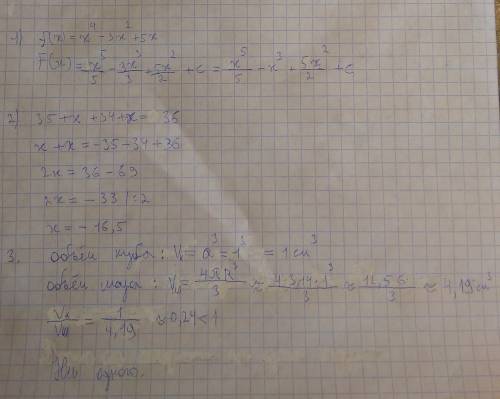 1) f(x) = x⁴ - 3x² + 5x
F(x) = x⁵/5 - 3x³/3 + 5x²/2 + c = x⁵/5 - x³ + 5x²/2 + c
2) 35 + x + 34 + x = 36
x + x = -35 - 34 + 36
2x = 36 - 69
2x = -33 | : 2
x = -16,5
3. объём куба: Vк = a³ = 1³ = 1 см³
объём шара: Vш = 4πR³/3 ≈ 4·3,14·1³/3 ≈ 12,56/3 ≈ 4,19 см³
Vк/Vш = 1/4,19 ≈ 0,24 < 1
Ни одного.